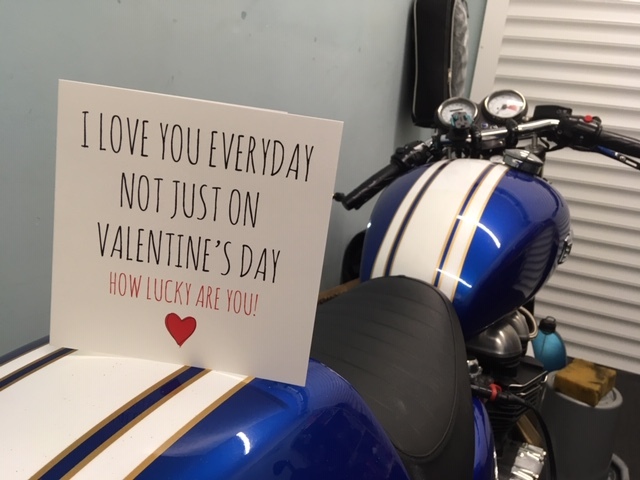 I LOVE YOU EVERYDAY
NOT JUST ON
VALENTINE'S DAY
HOW LUCKY ARE YOU!